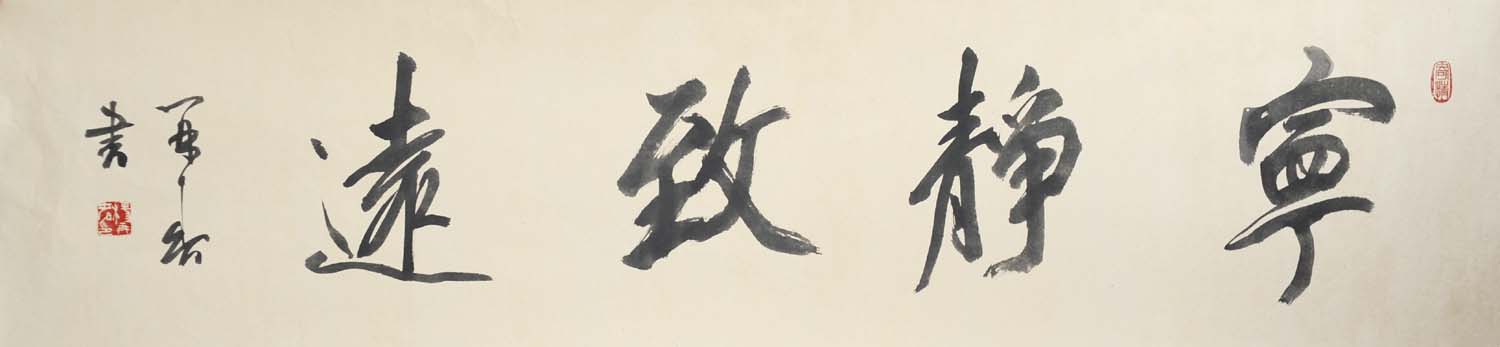 寧靜致遠
書